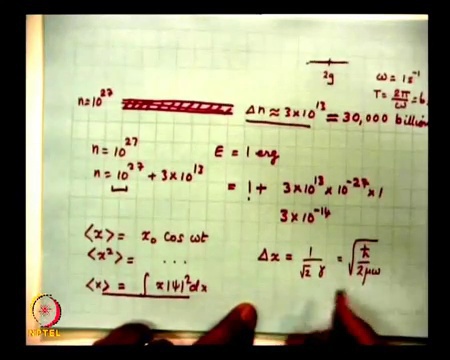 2g
ω = 1 s⁻¹
T = 2π/ω =
n=10²⁷
Δn ≈ 3×10¹³ = 30,000 billion
n = 10²⁷ E = 1 erg
n = 10²⁷ + 3×10¹³ = 1 + 3×10¹³×10⁻²⁷×1
3×10⁻¹⁴
⟨x⟩ = x₀ cos ωt
⟨x²⟩ = ...
Δx = 1/(√2 γ) = √(ħ/2μω)
⟨x⟩ = ∫ x|ψ|²dx
NPTEL